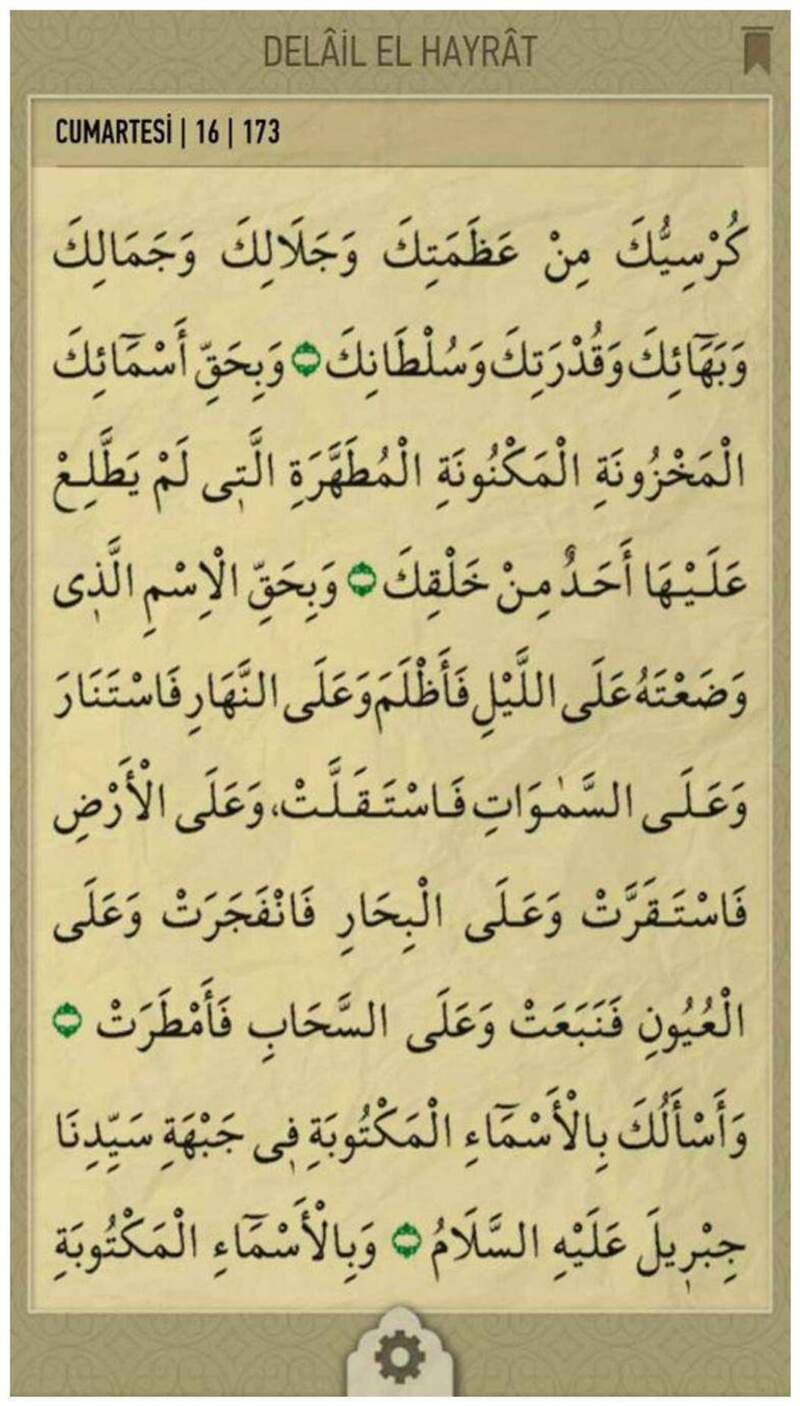 DELÂİL EL HAYRÂT
CUMARTESİ | 16 | 173
كُرْسِيُّكَ مِنْ عَظَمَتِكَ وَجَلَالِكَ وَجَمَالِكَ
وَبَهَٓائِكَ وَقُدْرَتِكَ وَسُلْطَانِكَ وَبِحَقِّ أَسْمَٓائِكَ
الْمَخْزُونَةِ الْمَكْنُونَةِ الْمُطَهَّرَةِ الَّتِى لَمْ يَطَّلِعْ
عَلَيْهَا أَحَدٌ مِنْ خَلْقِكَ وَبِحَقِّ الْاِسْمِ الَّذِى
وَضَعْتَهُ عَلَى اللَّيْلِ فَأَظْلَمَ وَعَلَى النَّهَارِ فَاسْتَنَارَ
وَعَلَى السَّمٰوَاتِ فَاسْتَقَلَّتْ، وَعَلَى الْأَرْضِ
فَاسْتَقَرَّتْ وَعَلَى الْبِحَارِ فَانْفَجَرَتْ وَعَلَى
الْعُيُونِ فَنَبَعَتْ وَعَلَى السَّحَابِ فَأَمْطَرَتْ
وَأَسْأَلُكَ بِالْأَسْمَٓاءِ الْمَكْتُوبَةِ فِى جَبْهَةِ سَيِّدِنَا
جِبْرِيلَ عَلَيْهِ السَّلَامُ وَبِالْأَسْمَٓاءِ الْمَكْتُوبَةِ